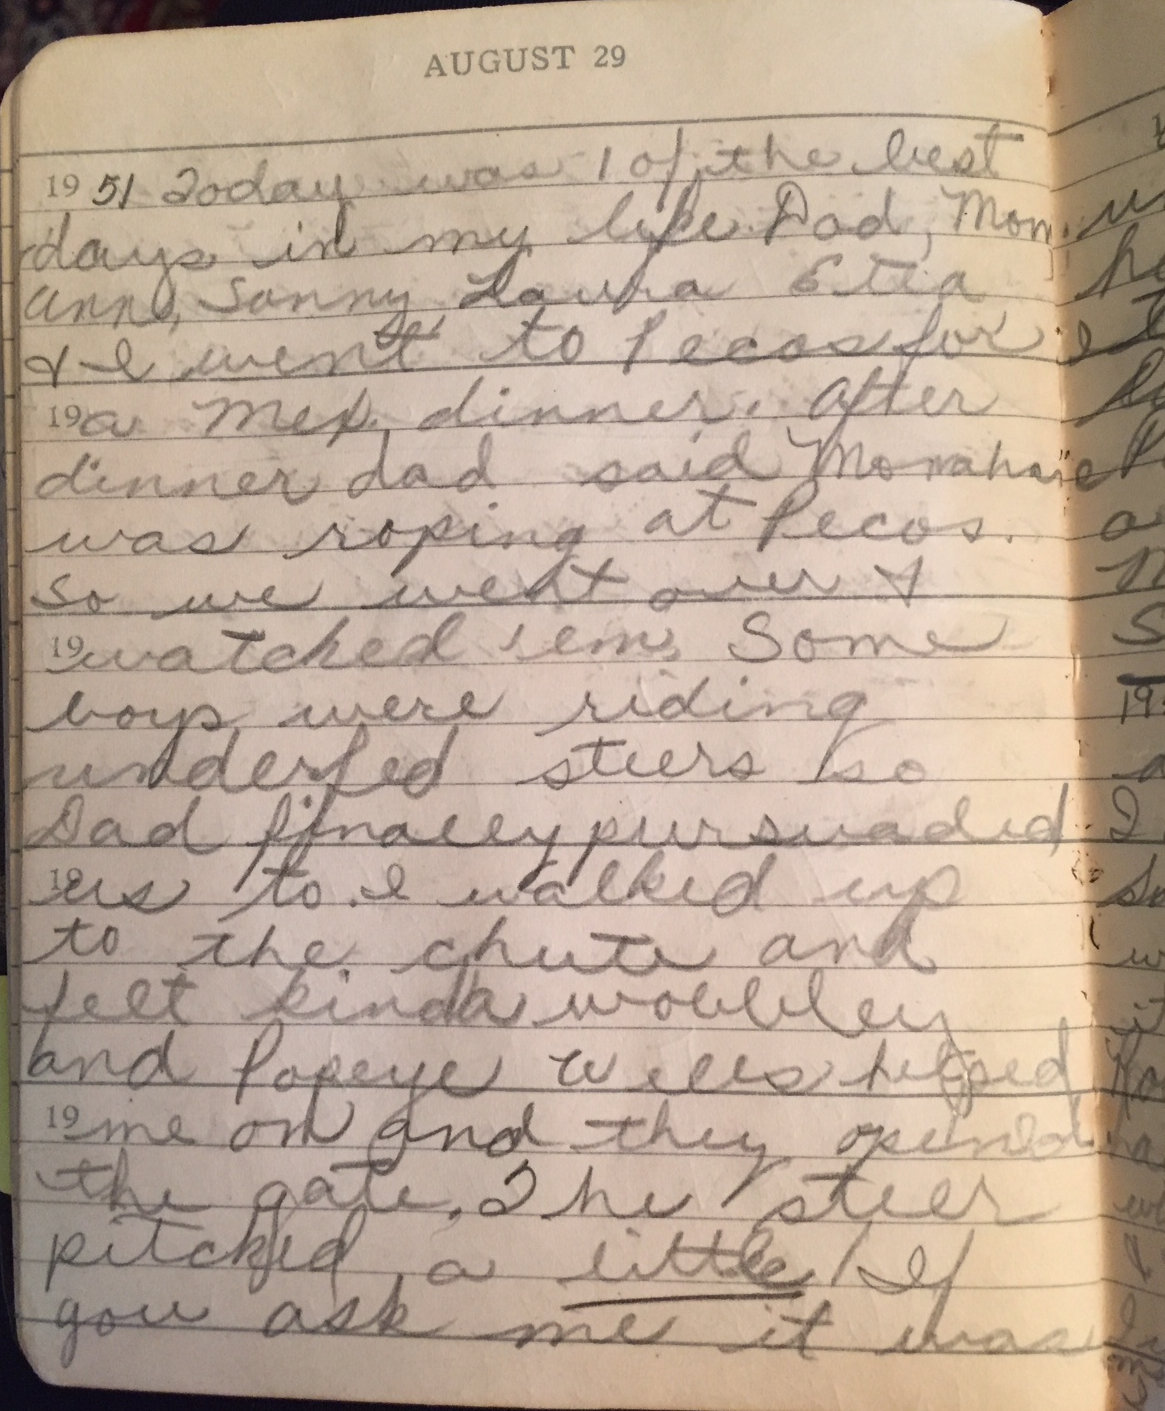 AUGUST 29
1951 Today was 1 of the best
days in my life Dad, Mom,
Ann, Sonny Laura Etta
& I went to Pecos for
19 a Mex. dinner. After
dinner dad said Monahans
was roping at Pecos.
So we went over &
19 watched 'em. Some
boys were riding
underfed steers so
Dad finally pursuaded
19 us to. I walked up
to the chute and
felt kinda wobbley
and Popeye Wells helped
19 me on and they opened
the gate. The steer
pitched a little! If
you ask me it was